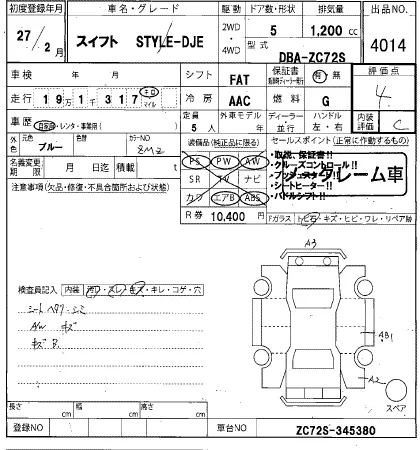 初度登録年月 車名・グレード 駆動 ドア数・形状 排気量 出品NO.
27/2月 スイフト STYLE-DJE 2WD・4WD 5 1,200 cc 4014
型式 DBA-ZC72S
車検 年 月 シフト FAT 保証書 有 無 燃料 G 評価点 4
走行 19万1千317 キロ マイル 冷房 AAC 内装評価 C
車歴 自家用・レンタ・事業用( ) 定員 5人 外車モデル 年 ディーラー・並行 ハンドル 左・右
外色 元色 ブルー カラーNO 8MZ
装備品(純正品に限る) セールスポイント(正常に作動するもの)
名義変更期限 月 日迄 積載 t
PS PW AW
SR TV ナビ
カワ エアB ABS
・取説、保証書!!
・クルーズコントロール!!
・プッシュスタート!!
・シートヒーター!!
・パドルシフト!!
ノークレーム車
注意事項(欠品・修復・不具合箇所および状態)
R券 10,400円 Fガラス トビ石・キズ・ヒビ・ワレ・リペア跡
検査員記入 内装 汚レ・スレ・キズ・キレ・コゲ・穴
A3
AB1
A2
スペア
長さ cm 幅 cm 高さ cm
登録NO 車台NO ZC72S-345380